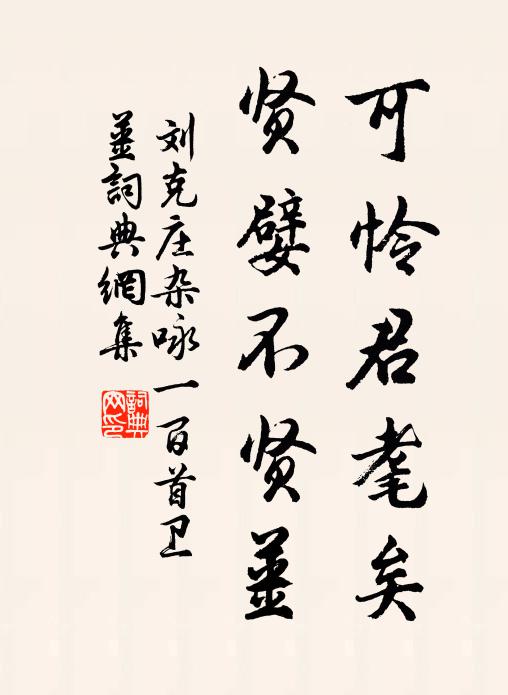 可怜君耄矣
贤嬖不贤薑
刘克庄杂咏一百首卫
薑詞典網集
詞典
网印